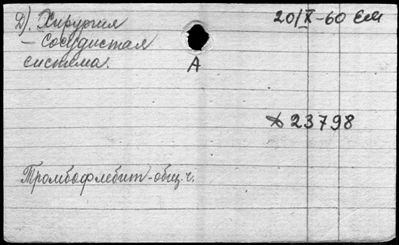 Д). Хирургия
20/X-60
– Сосудистая
система.
А
23798
Тромбофлебит-общ.ч.